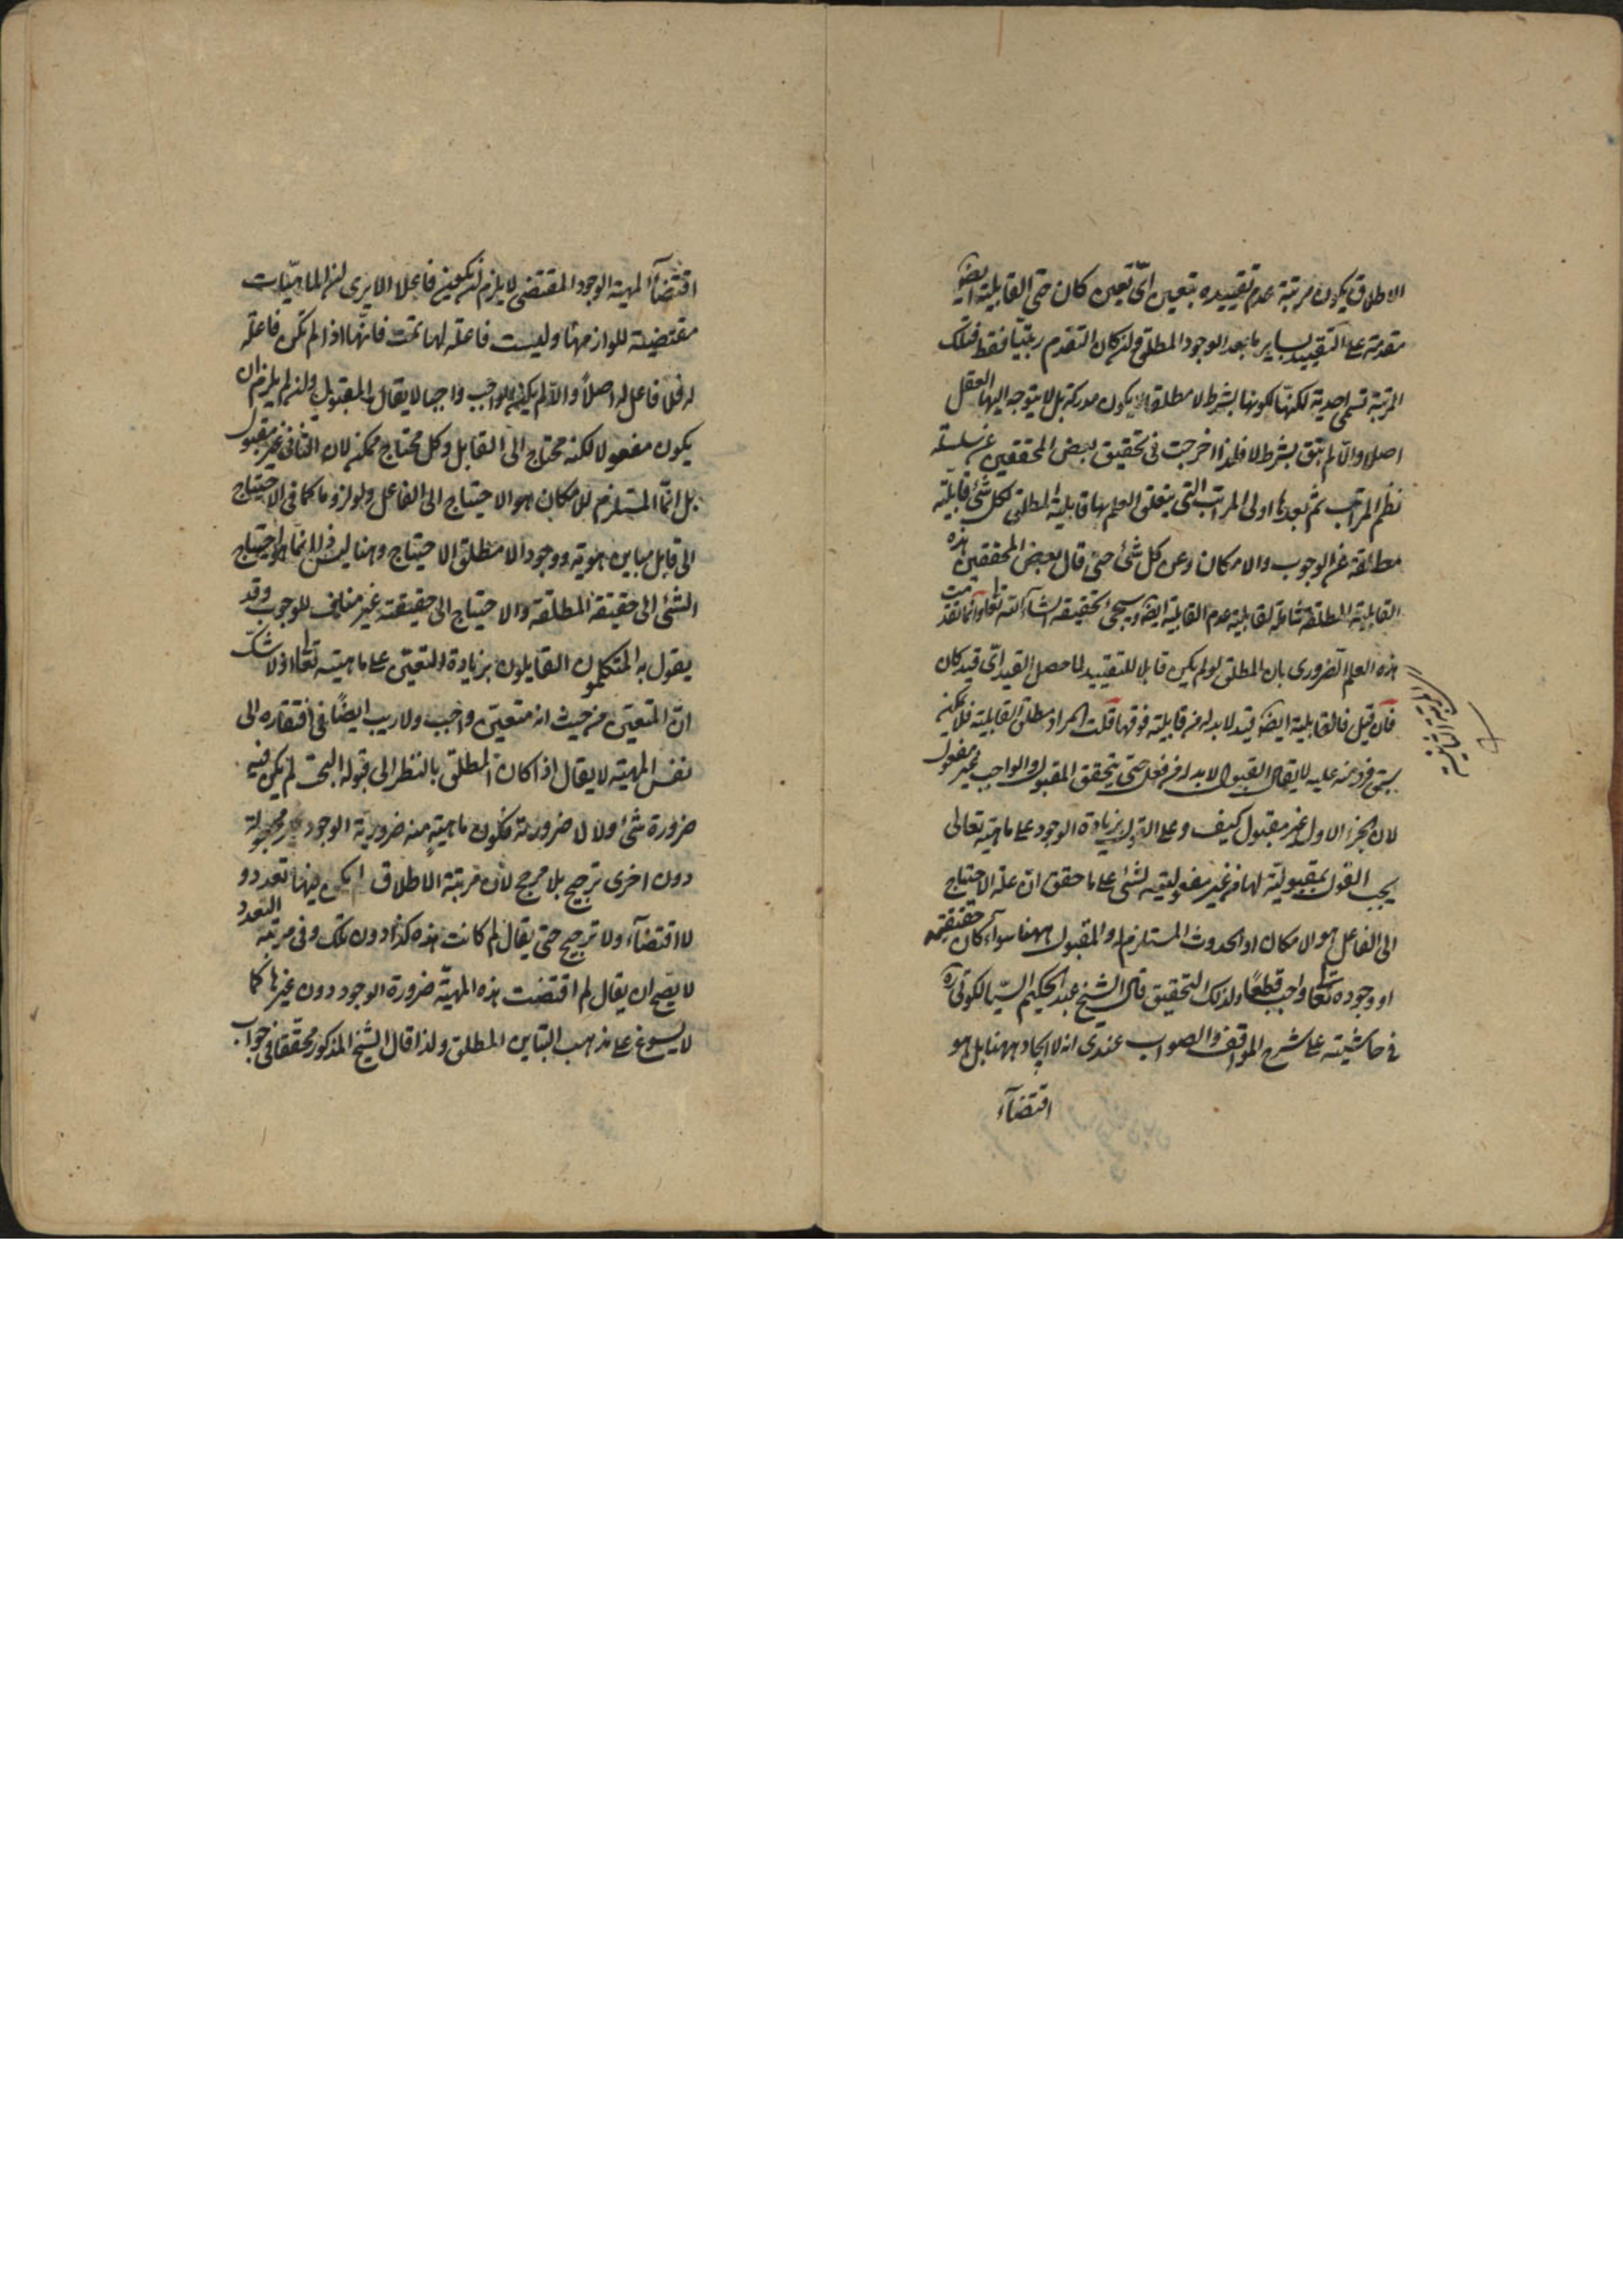 الاطلاق يكون مرتبة عدم تقييده بتعين اىّ تعين كان حتى القابلية ايضا
متقدمة على التقييد بساير ما بعد الوجود المطلق ولن كان التقدم رتبيّا فقط فتلك
المرتبة تسمى احدية لكنها لكونها بشرط لا مطلقا لا يكون مدركة بل لا يتوجه اليها العقل
اصلا والّا لم تبق بشرط لا فلهذا اخرجت فى تحقيق بعض المحققين عن سلسلة
نظم المراتب ثم بعدها اولى المراتب التى يتعلق العلم بها قابلية المطلق لكل شئ قابلية
مطلقة عن الوجوب والامكان وعن كل شئ حتى قال بعض المحققين هذه
القابلية المطلقة شاملة لقابلية عدم القابلية ايضا وسيجئ تحقيقه انشآء الله تعالى وانما تقدمت
هذه العلم الضرورى بان المطلق لو لم يكن قابلا للتقييد لما حصل القيد اىّ قيد كان
فان قيل فالقابلية ايضا قيد لا بد له من قابلية فوقها قلت المراد مطلق القابلية فلا يمكن
سبق فرد منه عليه لا يقال القبول لا بد له من فعل حتى يتحقق المقبول والواجب غير مفعول
لان الجزء الاول غير مقبول كيف وعلى القول بزيادة الوجود على ماهيته تعالى
يجب القول بمقبوليته لها من غير مفعوليته لشئ على ما حقق ان علة الاحتياج
الى الفاعل هو الامكان او الحدوث المستلزم له والمقبول ههنا سوآء كان حقيقته
او وجوده تعالى واجب قطعًا ولذلك التحقيق قال الشيخ عبد الحكيم السّيالكوتى ره
فى حاشيته على شرح المواقف والصواب عندى انه لا ايجاد ههنا بل هو
اقتضآء
المرتبة الثانية
اقتضآء المهية الوجود والمقتضى لا يلزم لن يكون فاعلا الا يرى لن الماهيّات
مقتضية للوازمها وليست فاعلة لها تمت فانّها اذا لم تكن فاعلة
له فلا فاعل له اصلًا والّا لم يكن الواجب واجبا لا يقال المقبول ولن لم يلزم ان
يكون مفعولا لكنه محتاج الى القابل وكل محتاج ممكن لان الثانى غير مقبول
بل انّما المستلزم للامكان هو الاحتياج الى الفاعل ولو لزوما كما فى الاحتياج
الى قابل مباين هويته ووجودا لا مطلق الاحتياج وهنا ليس ذلك انما هو احتياج
الشئ الى حقيقته المطلقة والاحتياج الى حقيقته غير مناف للوجوب وقد
يقول به المتكلمون القايلون بزيادة التعيّن على ماهيته تعالى اذ لا شك
ان المتعيّن من حيث انه متعيّن واجب ولا ريب ايضًا فى افتقاره الى
نفس المهية لا يقال اذا كان المطلق بالنظر الى قبوله البحت لم يكن فيه
ضرورة شئ ولا لا ضرورته فكون ماهيةٍ منه ضرورية الوجود غير مجعولة
دون اخرى ترجيح بلا مرجح لان مرتبة الاطلاق لم يكن فيها تعدد و
لا اقتضآء ولا ترجيح حتى يقال لم كانت هذه كذا دون تلك وفى مرتبة التعدد
لا يصح ان يقال لم اقتضت هذه المهيّة ضرورة الوجود دون غيرها كما
لا يسوغ على مذهب التباين المطلق ولذا قال الشيخ المذكور محققا فى جواب